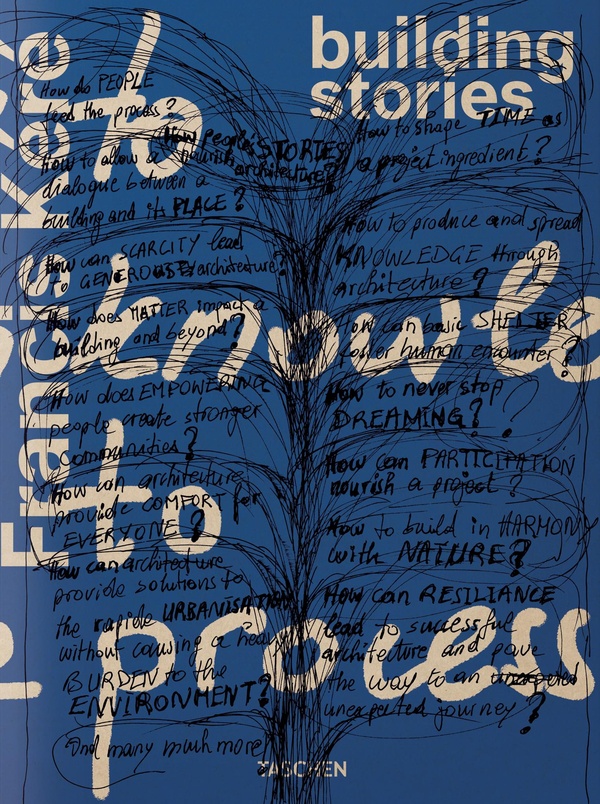 building
stories
Francis Kéré
to
knowle
to
process
How do PEOPLE
feed the process?
How people's STORIES
nourish
architecture?
How to shape TIME as
a project ingredient?
How to allow a
dialogue between a
building and its PLACE?
How to produce and spread
KNOWLEDGE through
architecture?
How can SCARCITY lead
to GENEROUSE architecture?
How does MATTER impact a
building and beyond?
How can basic SHELTER
foster human encounter?
How does EMPOWERING
people create stronger
communities?
How to never stop
DREAMING?
How can architecture
provide COMFORT for
EVERYONE?
How can PARTICIPATION
nourish a project?
How can architecture
provide solutions to
the rapide URBANISATION
without causing a heavy
BURDEN to the
ENVIRONMENT?
How to build in HARMONY
with NATURE?
How can RESILIANCE
lead to successful
architecture and pave
the way to an unexpected
unexpected journey?
And many much more
TASCHEN